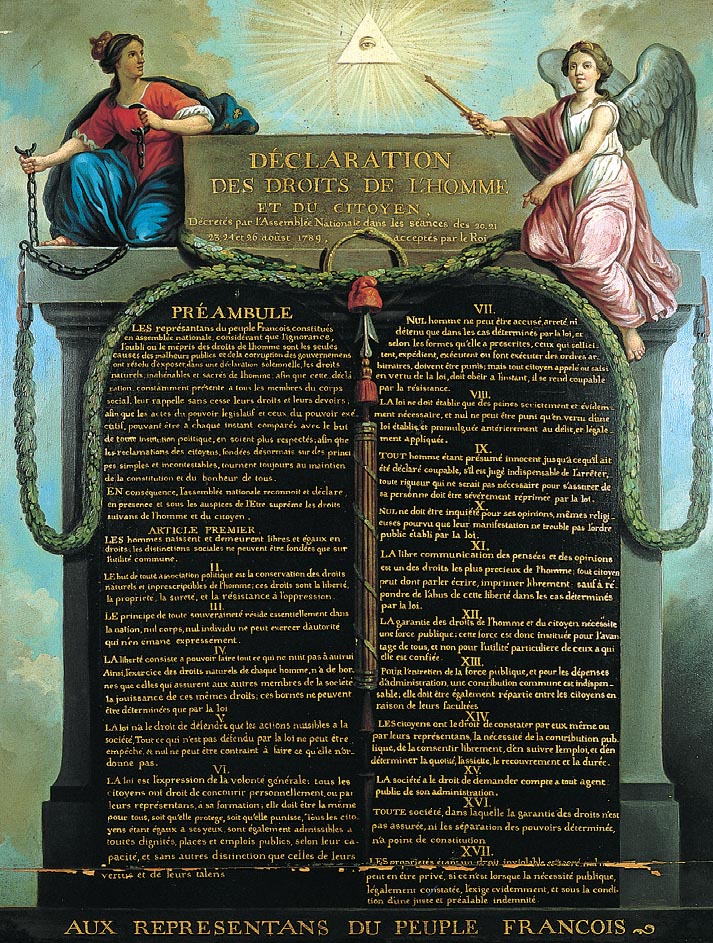 DÉCLARATION
DES DROITS DE L'HOMME
ET DU CITOYEN,
Décretés par l'Assemblée Nationale dans les séances des 20, 21
23, 24 et 26 aoûst 1789, acceptés par le Roi
PRÉAMBULE
LES représantans du peuple Francois, constitués
en assemblée nationale, considérant que l'ignorance,
l'oubli ou le mépris des droits de l'homme sont les seules
causes des malheurs publics et de la corruption des gouvernemens
ont résolu d'exposer, dans une déclaration solemnelle, les droits
naturels, inaliénables et sacrés de l'homme; afin que cette, décla
ration, constamment présente a tous les membres du corps
social, leur rappelle sans cesse leurs droits et leurs devoirs;
afin que les actes du pouvoir législatif et ceux du pouvoir exé
cutif, pouvant être à chaque instant comparés avec le but
de toute institution politique, en soient plus respectés; afin que
les reclamations des citoyens, fondées désormais sur des princi
pes simples et incontestables, tournent toujours au maintien
de la constitution et du bonheur de tous.
EN conséquence, l'assemblée nationale reconnoit et déclare,
en presence et sous les auspices de l'Etre suprême les droits
suivans de l'homme et du citoyen.
ARTICLE PREMIER.
LES hommes naissent et demeurent libres et égaux en
droits; les distinctions sociales ne peuvent être fondées que sur
l'utilité commune.
II.
LE but de toute association politique est la conservation des droits
naturels et inprescriptibles de l'homme; ces droits sont la liberté,
la proprieté, la sureté, et la résistance à l'oppression.
III.
LE principe de toute souveraineté réside essentiellement dans
la nation, nul corps, nul individu ne peut exercer d'autorité
qui n'en émane expressement.
IV.
LA liberté consiste a pouvoir faire tout ce qui ne nuit pas à autrui
Ainsi, l'exercice des droits naturels de chaque homme, n'a de bor-
nes que celles qui assurent aux autres membres de la société
la jouissance de ces mêmes droits; ces bornes ne peuvent
être déterminées que par la loi
V.
LA loi n'a le droit de défendre que les actions nuisibles a la
société. Tout ce qui n'est pas défendu par la loi ne peut être
empêché, et nul ne peut être contraint à faire ce qu'elle n'or-
donne pas.
VI.
LA loi est l'expression de la volonté générale; tous les
citoyens ont droit de concourir personnellement, ou par
leurs représentans, à sa formation; elle doit être la même
pour tous, soit qu'elle protege, soit qu'elle punisse, Tous les cito-
yens étant égaux a ses yeux, sont également admissibles a
toutes dignités, places et emplois publics, selon leur ca-
pacité, et sans autres distinction que celles de leurs
vertus et de leurs talens
VII.
NUL homme ne peut être accusé, arreté ni
détenu que dans les cas déterminés par la loi, et
selon les formes qu'elle a prescrites, ceux qui sollici-
tent, expédient, exécutent ou font exécuter des ordres ar-
bitraires, doivent être punis; mais tout citoyen appelé ou saisi
en vertu de la loi, doit obéir a l'instant, il se rend coupable
par la résistance.
VIII.
LA loi ne doit établir que des peines strictement et évidem-
ment nécessaire, et nul ne peut être puni qu'en vertu d'une
loi établie, et promulguée antérierement au délit, et légale-
ment appliquée.
IX.
TOUT homme étant présumé innocent jusqu'à ce qu'il ait
été déclaré coupable, s'il est jugé indispensable de l'arrêter,
toute rigueur qui ne serait pas nécessaire pour s'assurer de
sa personne doit être sévèrement réprimée par la loi.
X.
NUL ne doit être inquiété pour ses opinions, mêmes religi
euses pourvu que leur manifestation ne trouble pas l'ordre
public établi par la loi.
XI.
LA libre communication des pensées et des opinions
est un des droits les plus precieux de l'homme; tout citoyen
peut dont parler écrire, imprimer librement: sauf à ré
pondre de l'abus de cette liberté dans les cas déterminés
par la loi.
XII.
LA garantie des droits de l'homme et du citoyen nécessite
une force publique; cette force est donc instituée pour l'avan
tage de tous, et non pour l'utilité particuliere de ceux a qui
elle est confiée.
XIII.
Pour l'entretien de la force publique, et pour les dépenses
d'administration, une contribution commune est indispen-
sable; elle doit être également répartie entre les citoyens en
raison de leurs facultées
XIV.
LES citoyens ont le droit de constater par eux même ou
par leurs représentans, la nécessité de la contribution pub-
lique, de la consentir librement, d'en suivre l'emploi, et d'en
déterminer la quotité, l'assiette, le recouvrement et la durée.
XV.
LA société a le droit de demander compte a tout agent
public de son administration.
XVI.
TOUTE société, dans laquelle la garantie des droits n'est
pas assurée, ni les séparation des pouvoirs déterminée,
n'a point de constitution
XVII.
LES proprietés étant un droit inviolable et sacré, nul ne
peut en être privé, si ce n'est lorsque la nécessité publique,
légalement constatée, l'exige evidemment, et sous la condi
tion d'une juste et préalable indemnité
AUX REPRESENTANS DU PEUPLE FRANCOIS